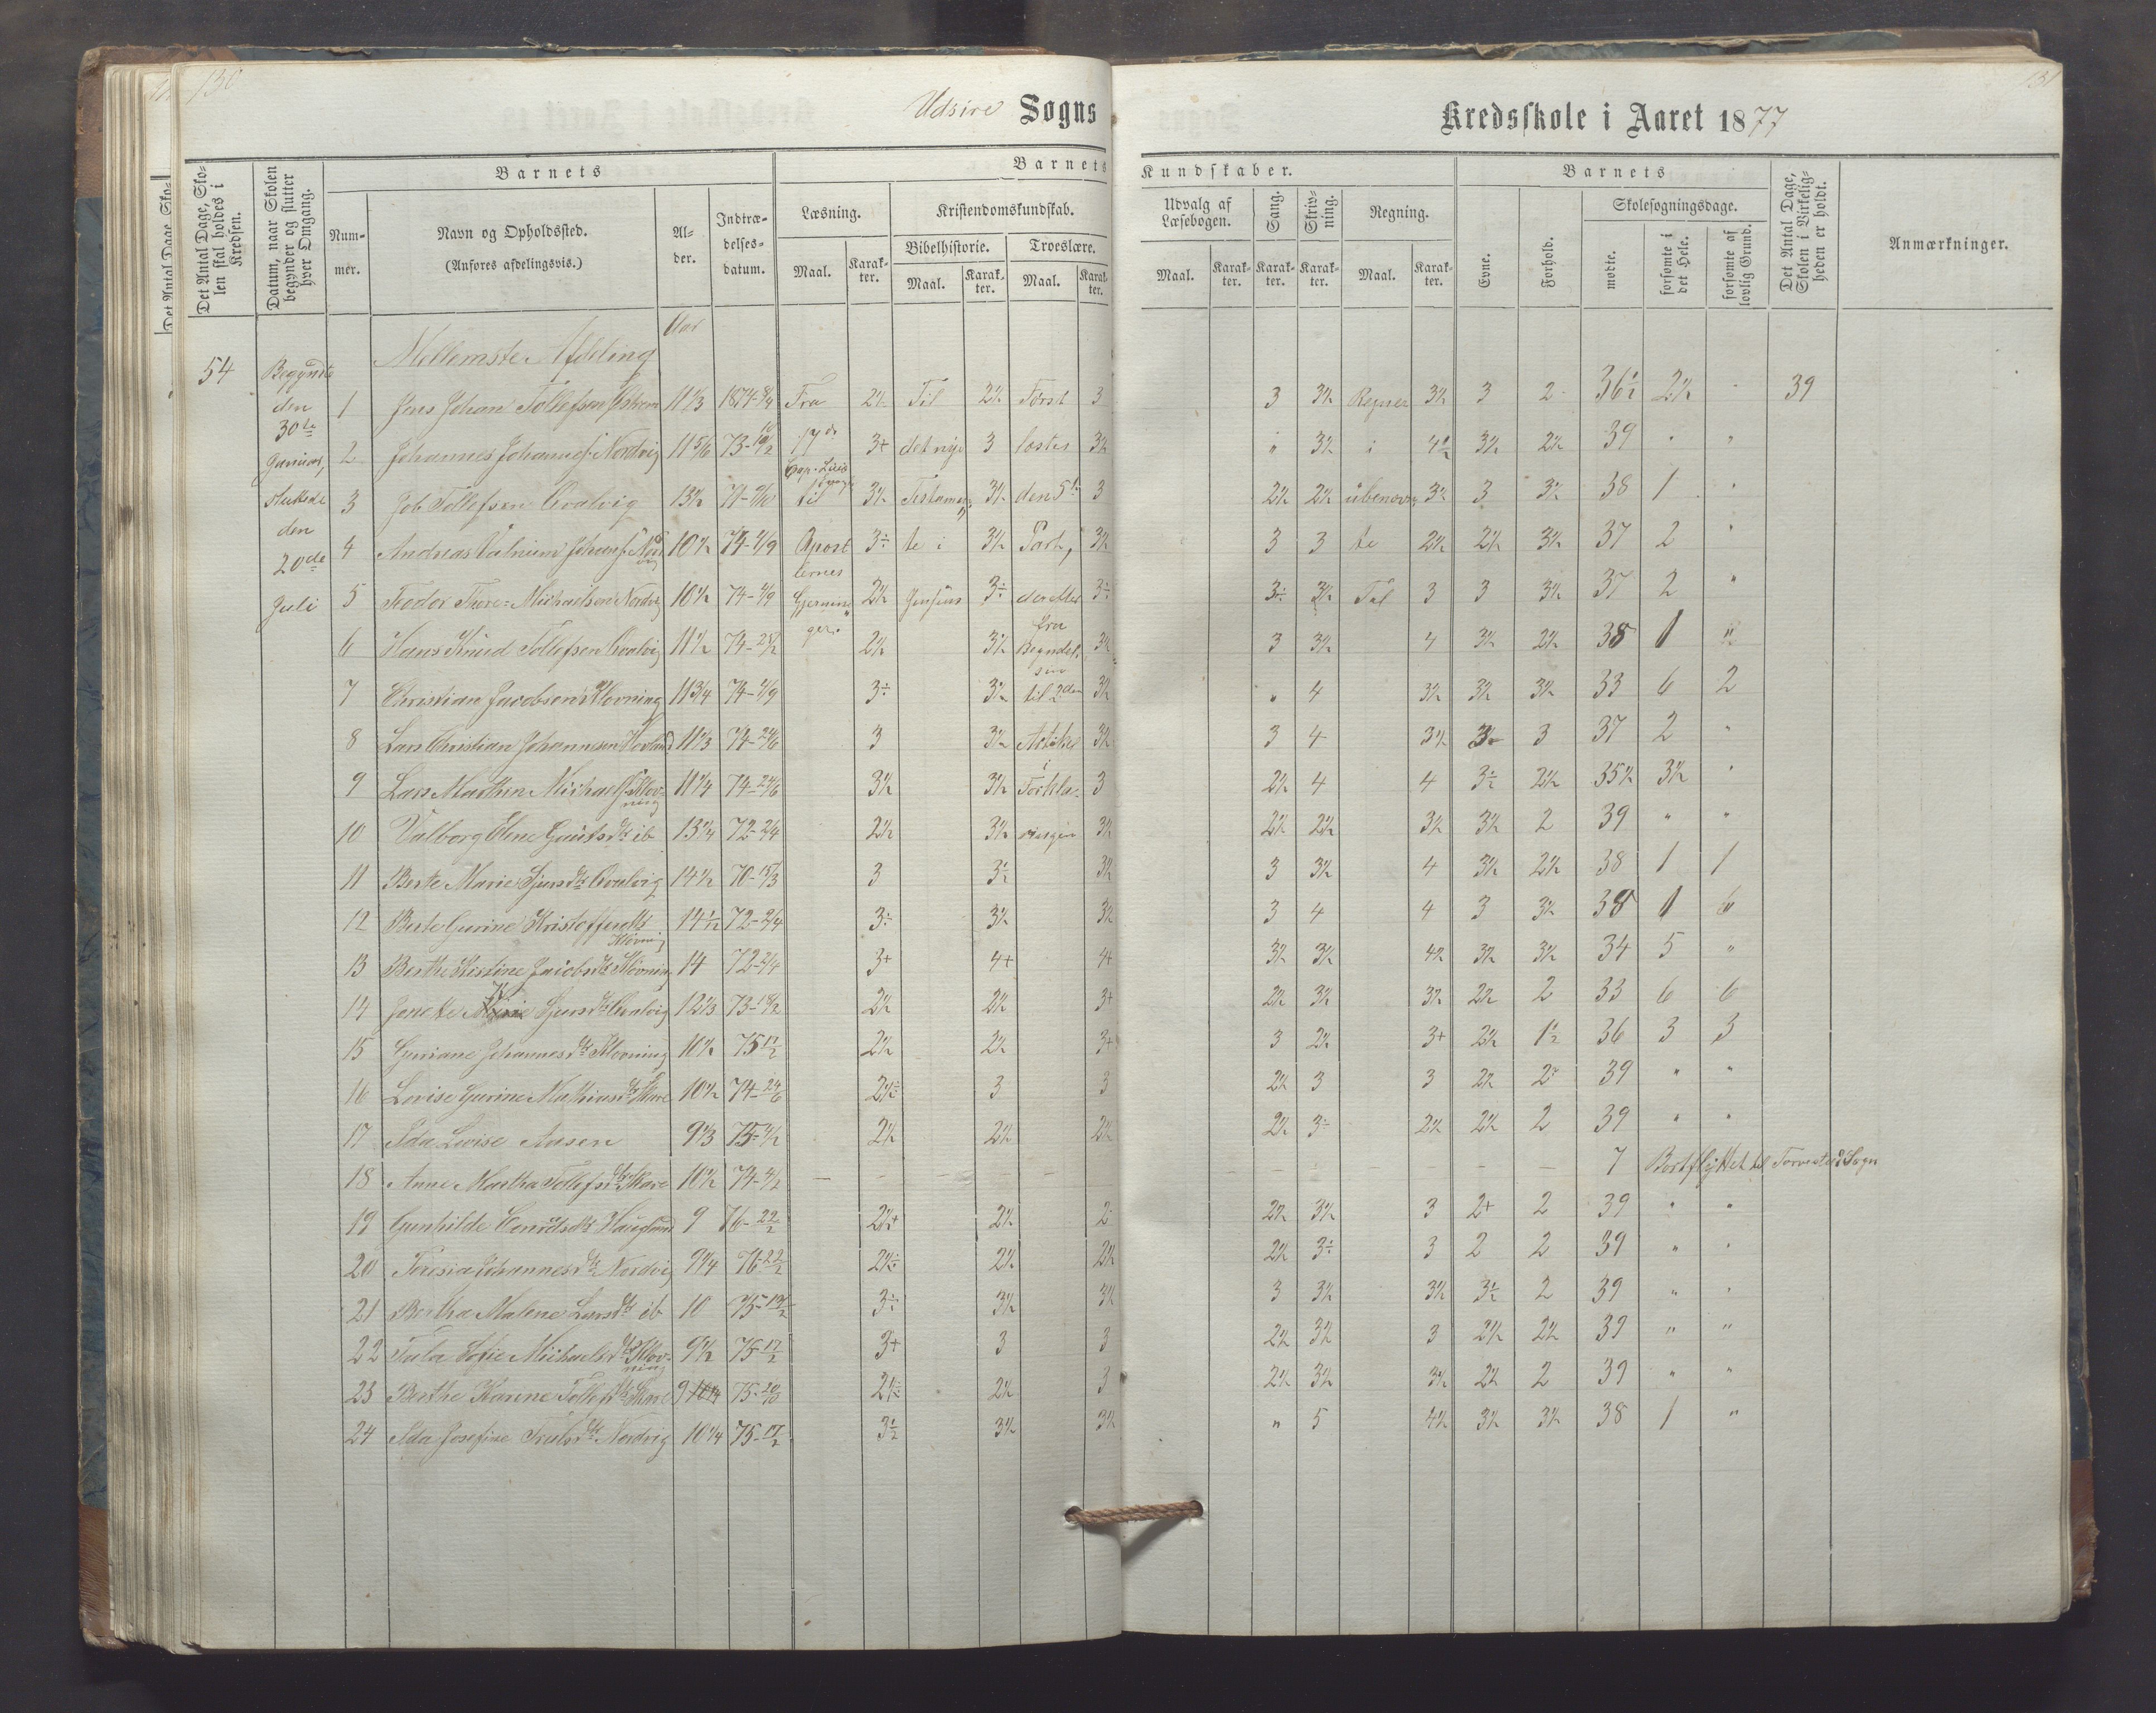 130
131
Udsire Sogns
Kredsskole i Aaret 1877
Det Antal Dage, Skolen skal holdes i Kredsen.
Datum, naar Skolen begynder og slutter hver Omgang.
Barnets
Nummer.
Navn og Opholdssted.
(Anføres afdelingsvis.)
Alder.
Indtrædelsesdatum.
Barnets
Læsning.
Maal. Karakter.
Kristendomskundskab.
Bibelhistorie.
Maal. Karakter.
Troeslære.
Maal. Karakter.
Kundskaber.
Udvalg af Læsebogen.
Maal. Karakter.
Sang.
Karakter.
Skrivning.
Karakter.
Regning.
Maal. Karakter.
Barnets
Evne.
Forhold.
Skolesøgningsdage.
mødte.
forsømte i det Hele.
forsømte af lovlig Grund.
Det Antal Dage, Skolen i Virkeligheden er holdt.
Anmærkninger.
Aar
Mellemste Afdeling
54 Begyndte den 30te Januar, sluttede den 20de Juli
1 Jens Johan Tollefsen 11 1/3 1874 Fra 2 1/2 Til 2 1/2 Først 3 3 3 1/2 Regner 3 1/2 3 2 36 1/2 2 1/2 39
2 Johannes Johannes. Nordvig 11 5/6 73 17de 3+ det nye 3 3 1/2 " 3 1/2 i 3 1/2 2 1/2 39 " "
3 Job Tollefsen Qvalvig 13 1/2 71 til 3 1/2 3 1/2 den 5te 3 2 1/2 2 1/2 ubenævn 3 1/2 3 3 1/2 38 1 "
4 Andreas 10 1/2 74-4/9 Apost 3÷ te i 3 1/2 Part, 3 1/2 3 3 te 2 1/2 2 1/2 3 1/2 37 2 "
5 Teodor Michaelsen Nordvig 10 1/2 74-4/9 lernes Gjerninger. 2 1/2 3÷ derefter 3÷ 3÷ 3 1/2 Tal 3 3 3 1/2 37 2 "
6 Hans Knud Tollefsen Qvalvig 11 1/2 74 2 1/2 3 1/2 fra Begyndelsen 3 1/2 3 3 1/2 4 3 1/2 2 1/2 38 1 "
7 Christian Jacobsen Klovning 11 3/4 74-4/9 3÷ 3 1/2 til 2den 3 1/2 " 4 3 1/2 3 1/2 3 1/2 33 6 2
8 Lars Christian Johannesen Hovland 11 1/3 74-24/6 3 3 1/2 Artikel 3 1/2 3 4 3 1/2 3 37 2 "
9 Lars Mathin Michaels. Klovning 11 1/4 74-24/6 3 1/2 3 1/2 i Forkla- 3 2 1/2 4 4 3 1/2 2 1/2 35 1/2 3 1/2 "
10 Valborg Elene Gautsdtr ib 13 1/4 72-2/4 2 1/2 3 1/2 ringen 3 1/2 2 1/2 2 1/2 3 1/2 3 1/2 2 39 " "
11 Berte Marie Sjursdtr Qvalvig 14 1/2 70-15/3 3 3 1/2 3 1/2 3 3 1/2 4 3 1/2 2 1/2 38 1 1
12 Berte Gurine Kristoffersdtr Klovning 14 1/2 72-2/4 3÷ 3 1/2 3 1/2 3 4 4 3 3 1/2 38 1 6
13 Berthe Kirstine Jacobsdtr Klovning 14 72-2/4 3+ 4+ 4+ 3 1/2 3 1/2 4 1/2 3 1/2 3 1/2 34 5 "
14 Sjursdtr Qvalvig 12 1/3 73-18/2 2 1/2 2 1/2 3+ 2 1/2 3 1/2 3 1/2 2 1/2 2 33 6 6
15 Guriane Johannesdtr Klovning 10 1/2 75 2 1/2 2 1/2 3+ 3 2 1/2 3+ 2 1/2 1 1/2 36 3 3
16 Lovise Gurine Mathiasdtr Skare 10 1/2 74-24/6 2 1/2÷ 3 3 2 1/2 3 3 2 1/2 2÷ 39 " "
17 Ida Lovise Aasen 9 1/3 75 2 1/2 2 1/2 2 1/2 2 1/2 3÷ 2 1/2 2 1/2 2 39 " "
18 Anne Martha Tollefsdtr Skare 10 1/2 74 — — — — — — — — — 7 Bortflyttet til Torvestad Sogn
19 Gunhilde 9 76-22/2 2 1/2+ 2 1/2 2 2 1/2 3 1/2 3 2+ 2 39 " "
20 Teresia Johannesdtr Nordvig 9 1/4 76-22/2 2 1/2÷ 2 1/2 2 1/2 2 1/2 3÷ 3 2 2 39 " "
21 Bertha Malene Larsdtr ib 10 75-17/2 3÷ 3 1/2 3 1/2 3 3 1/2 3 1/2 3 1/2 2 39 " "
22 Sofie Michaelsdtr Klovning 9 1/2 75-17/2 3+ 3 3 2 1/2 3 1/2 3 2 1/2 2 1/2 39 " "
23 Berthe Karine Tollefsdtr Skare 9 75 2 1/2÷ 2 1/2 3 2 1/2 3 1/2 3 1/2 2 1/2 2 39 " "
24 Ida Josefine Nordvig 10 1/4 75-17/2 3 1/2 3 1/2 3 1/2 " 5 4 1/2 3 1/2 3 1/2 38 1 "